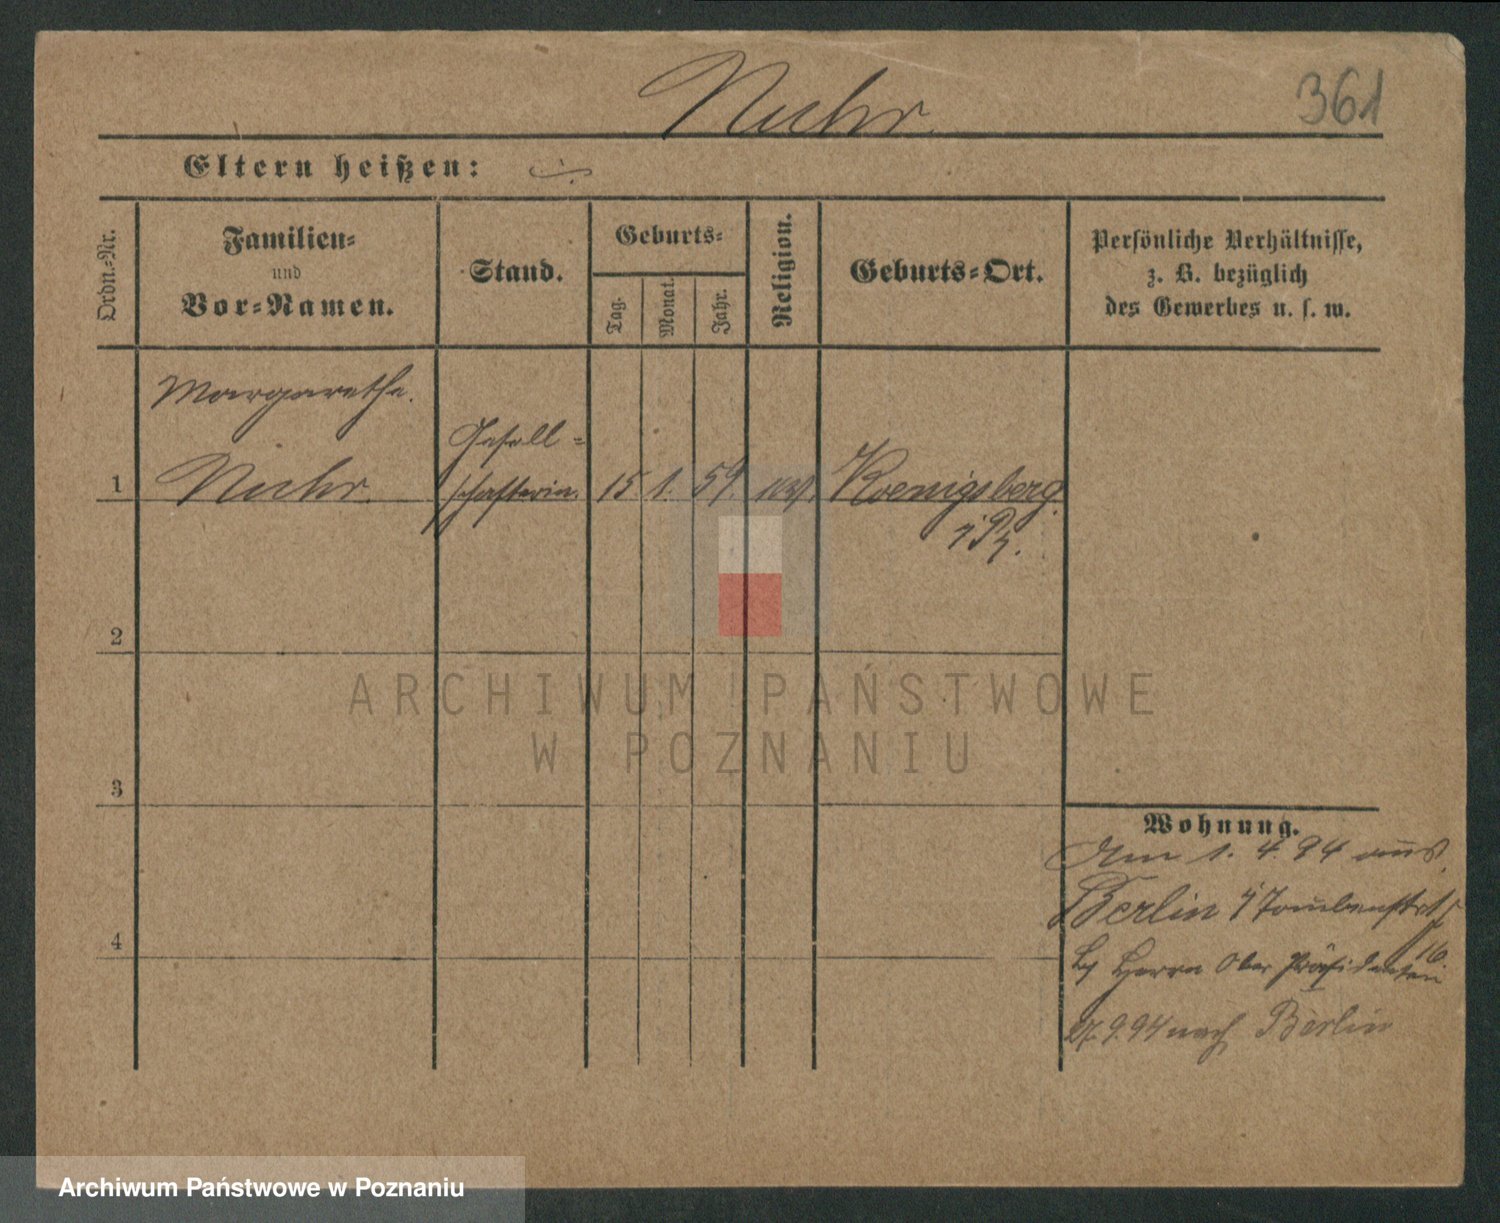 Nuhr.
361
Eltern heißen:
Ordn.-Nr.
Familien-
und
Vor-Namen.
Stand.
Geburts-
Tag.
Monat.
Jahr.
Religion.
Geburts-Ort.
Persönliche Verhältnisse,
z. B. bezüglich
des Gewerbes u. s. w.
Margarethe.
Gesell-
1 Nuhr. schafterin. 15 1. 59. Koenigsberg
i/Pr.
2
3
4
Wohnung.
Am 1. 4. 94 aus
Berlin
16
Herrn Ober Präsidenten
27.9.94 nach Berlin
ARCHIWUM PAŃSTWOWE
W POZNANIU
Archiwum Państwowe w Poznaniu